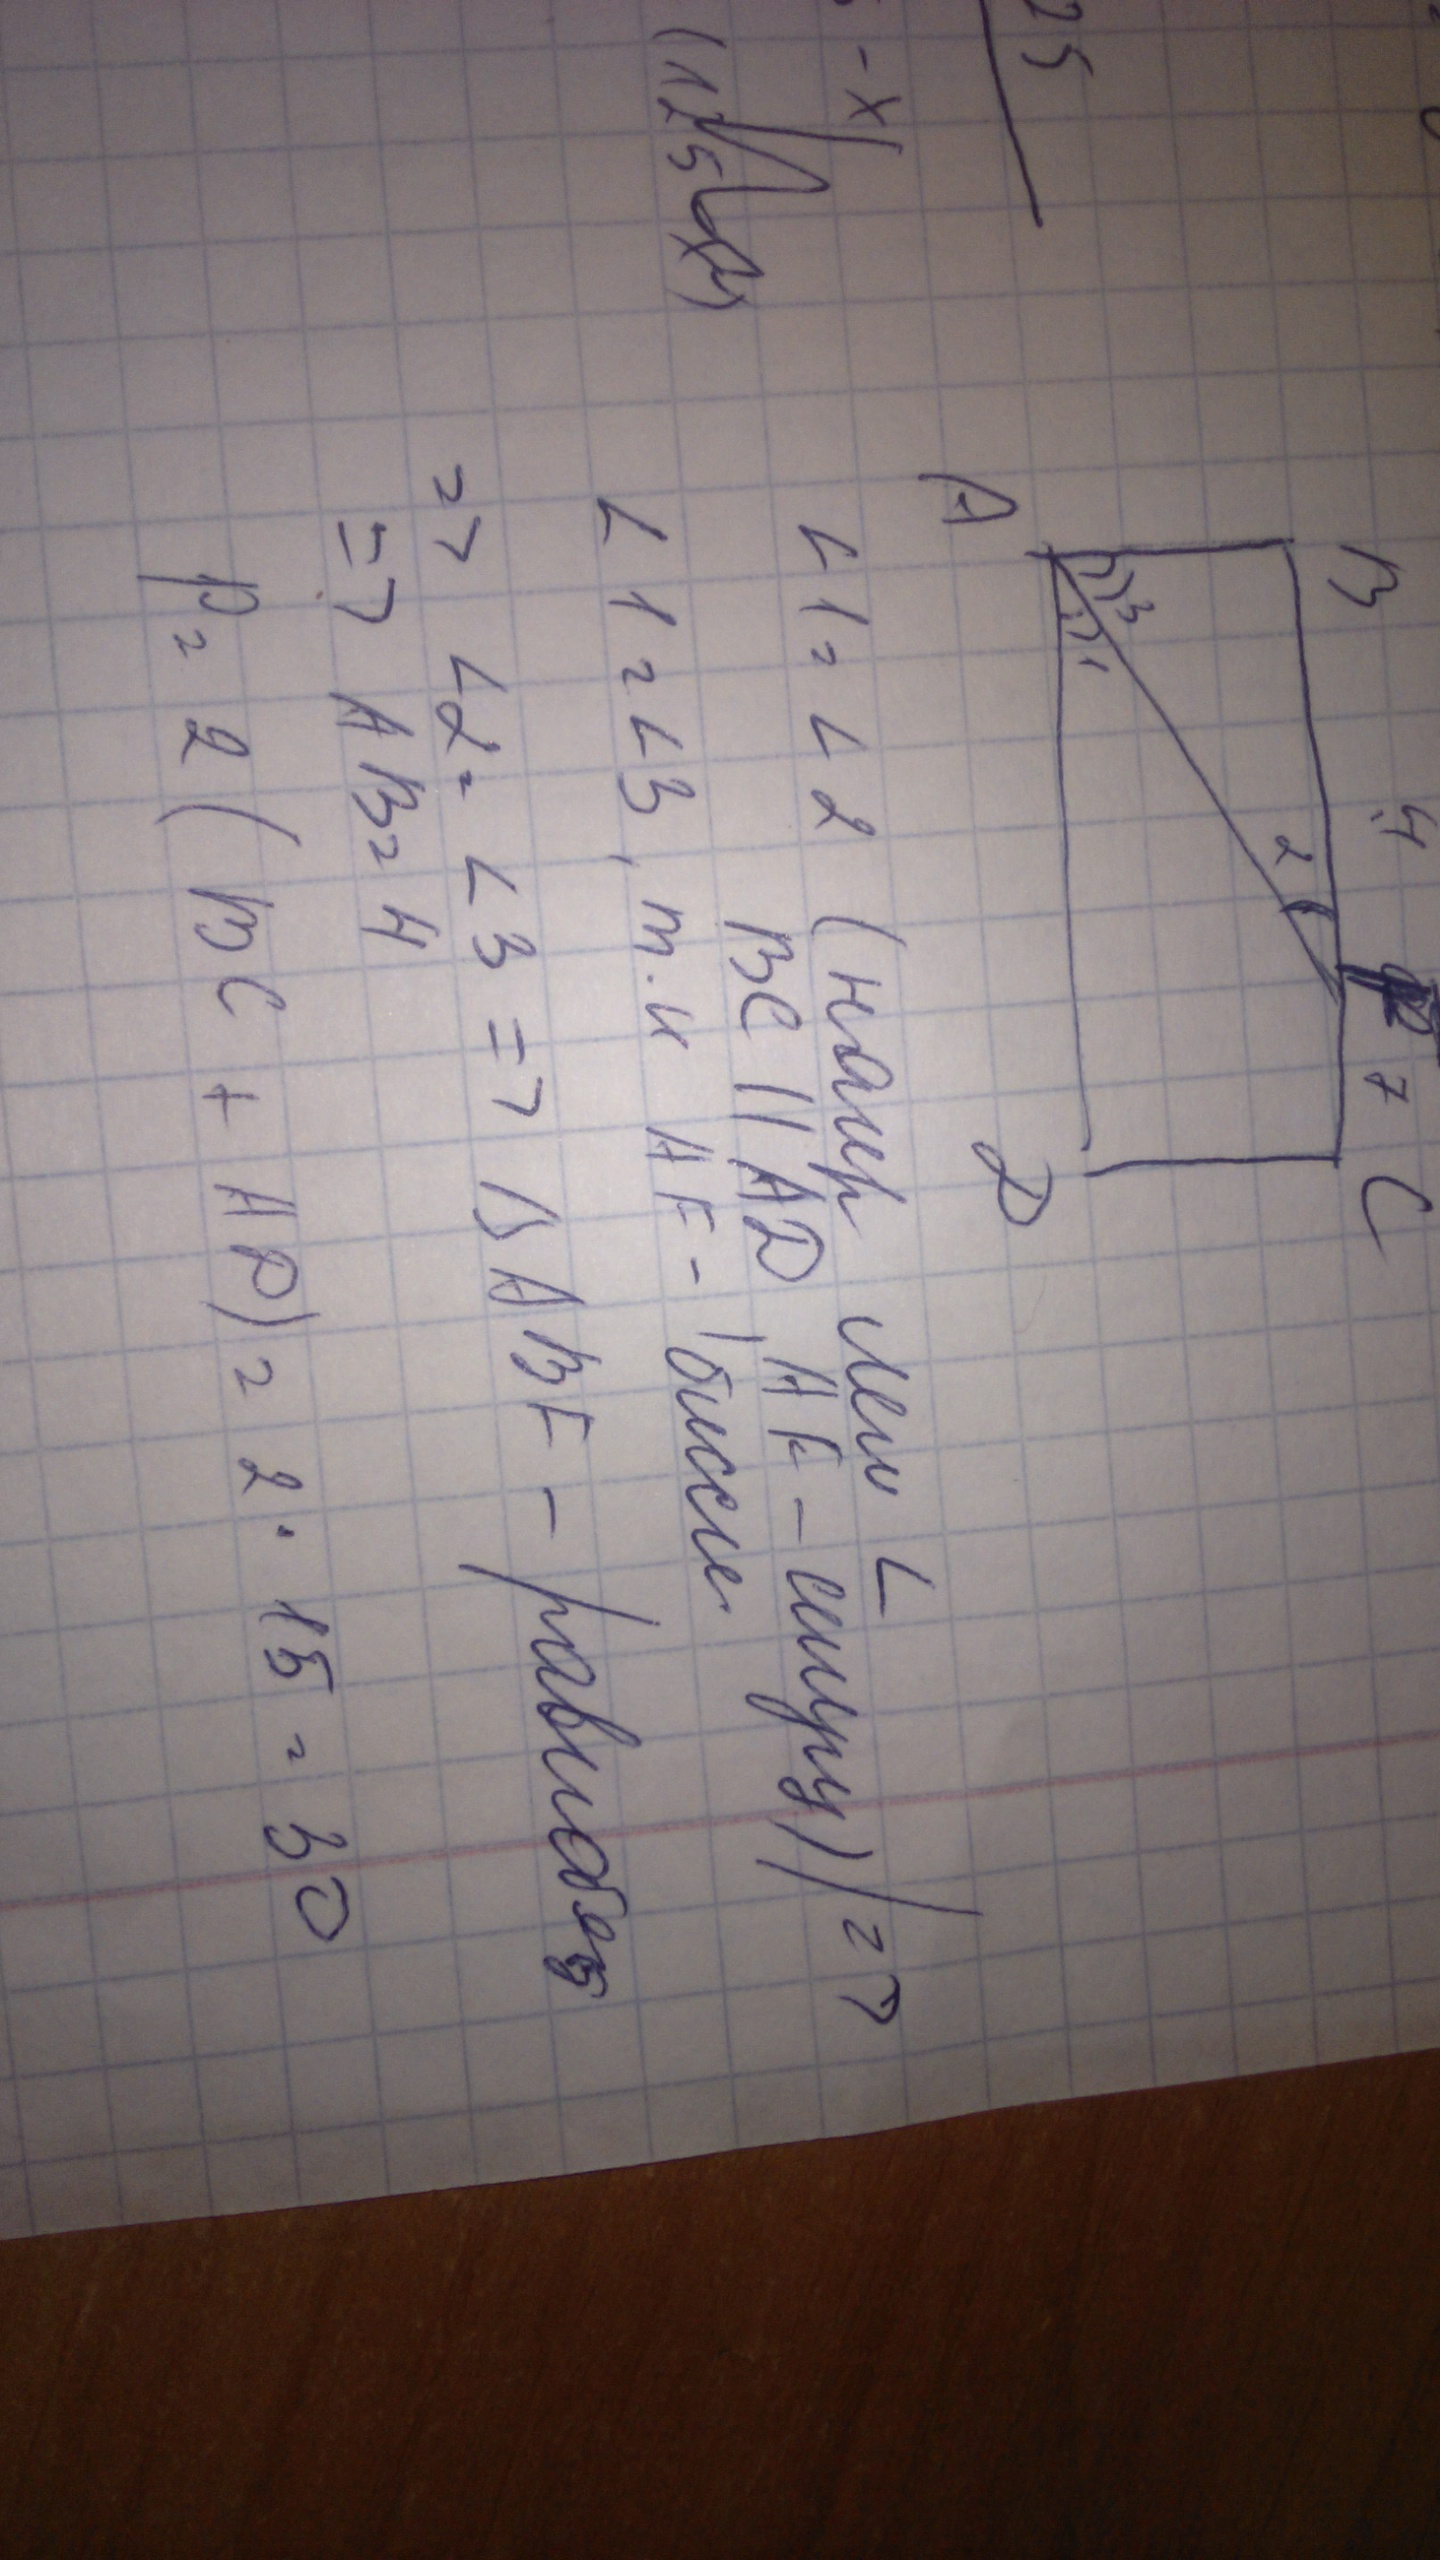 25
- x
(125
B 4 7 C
3
1
2
A D
∠1 = ∠2 (накр леж ∠
BC || AD AE - секущ) =>
∠1 = ∠3, т.к AE - биссе.
=> ∠2 = ∠3 => △ABE - равнобед
=> AB = 4
p = 2(BC + AB) = 2 · 15 = 30